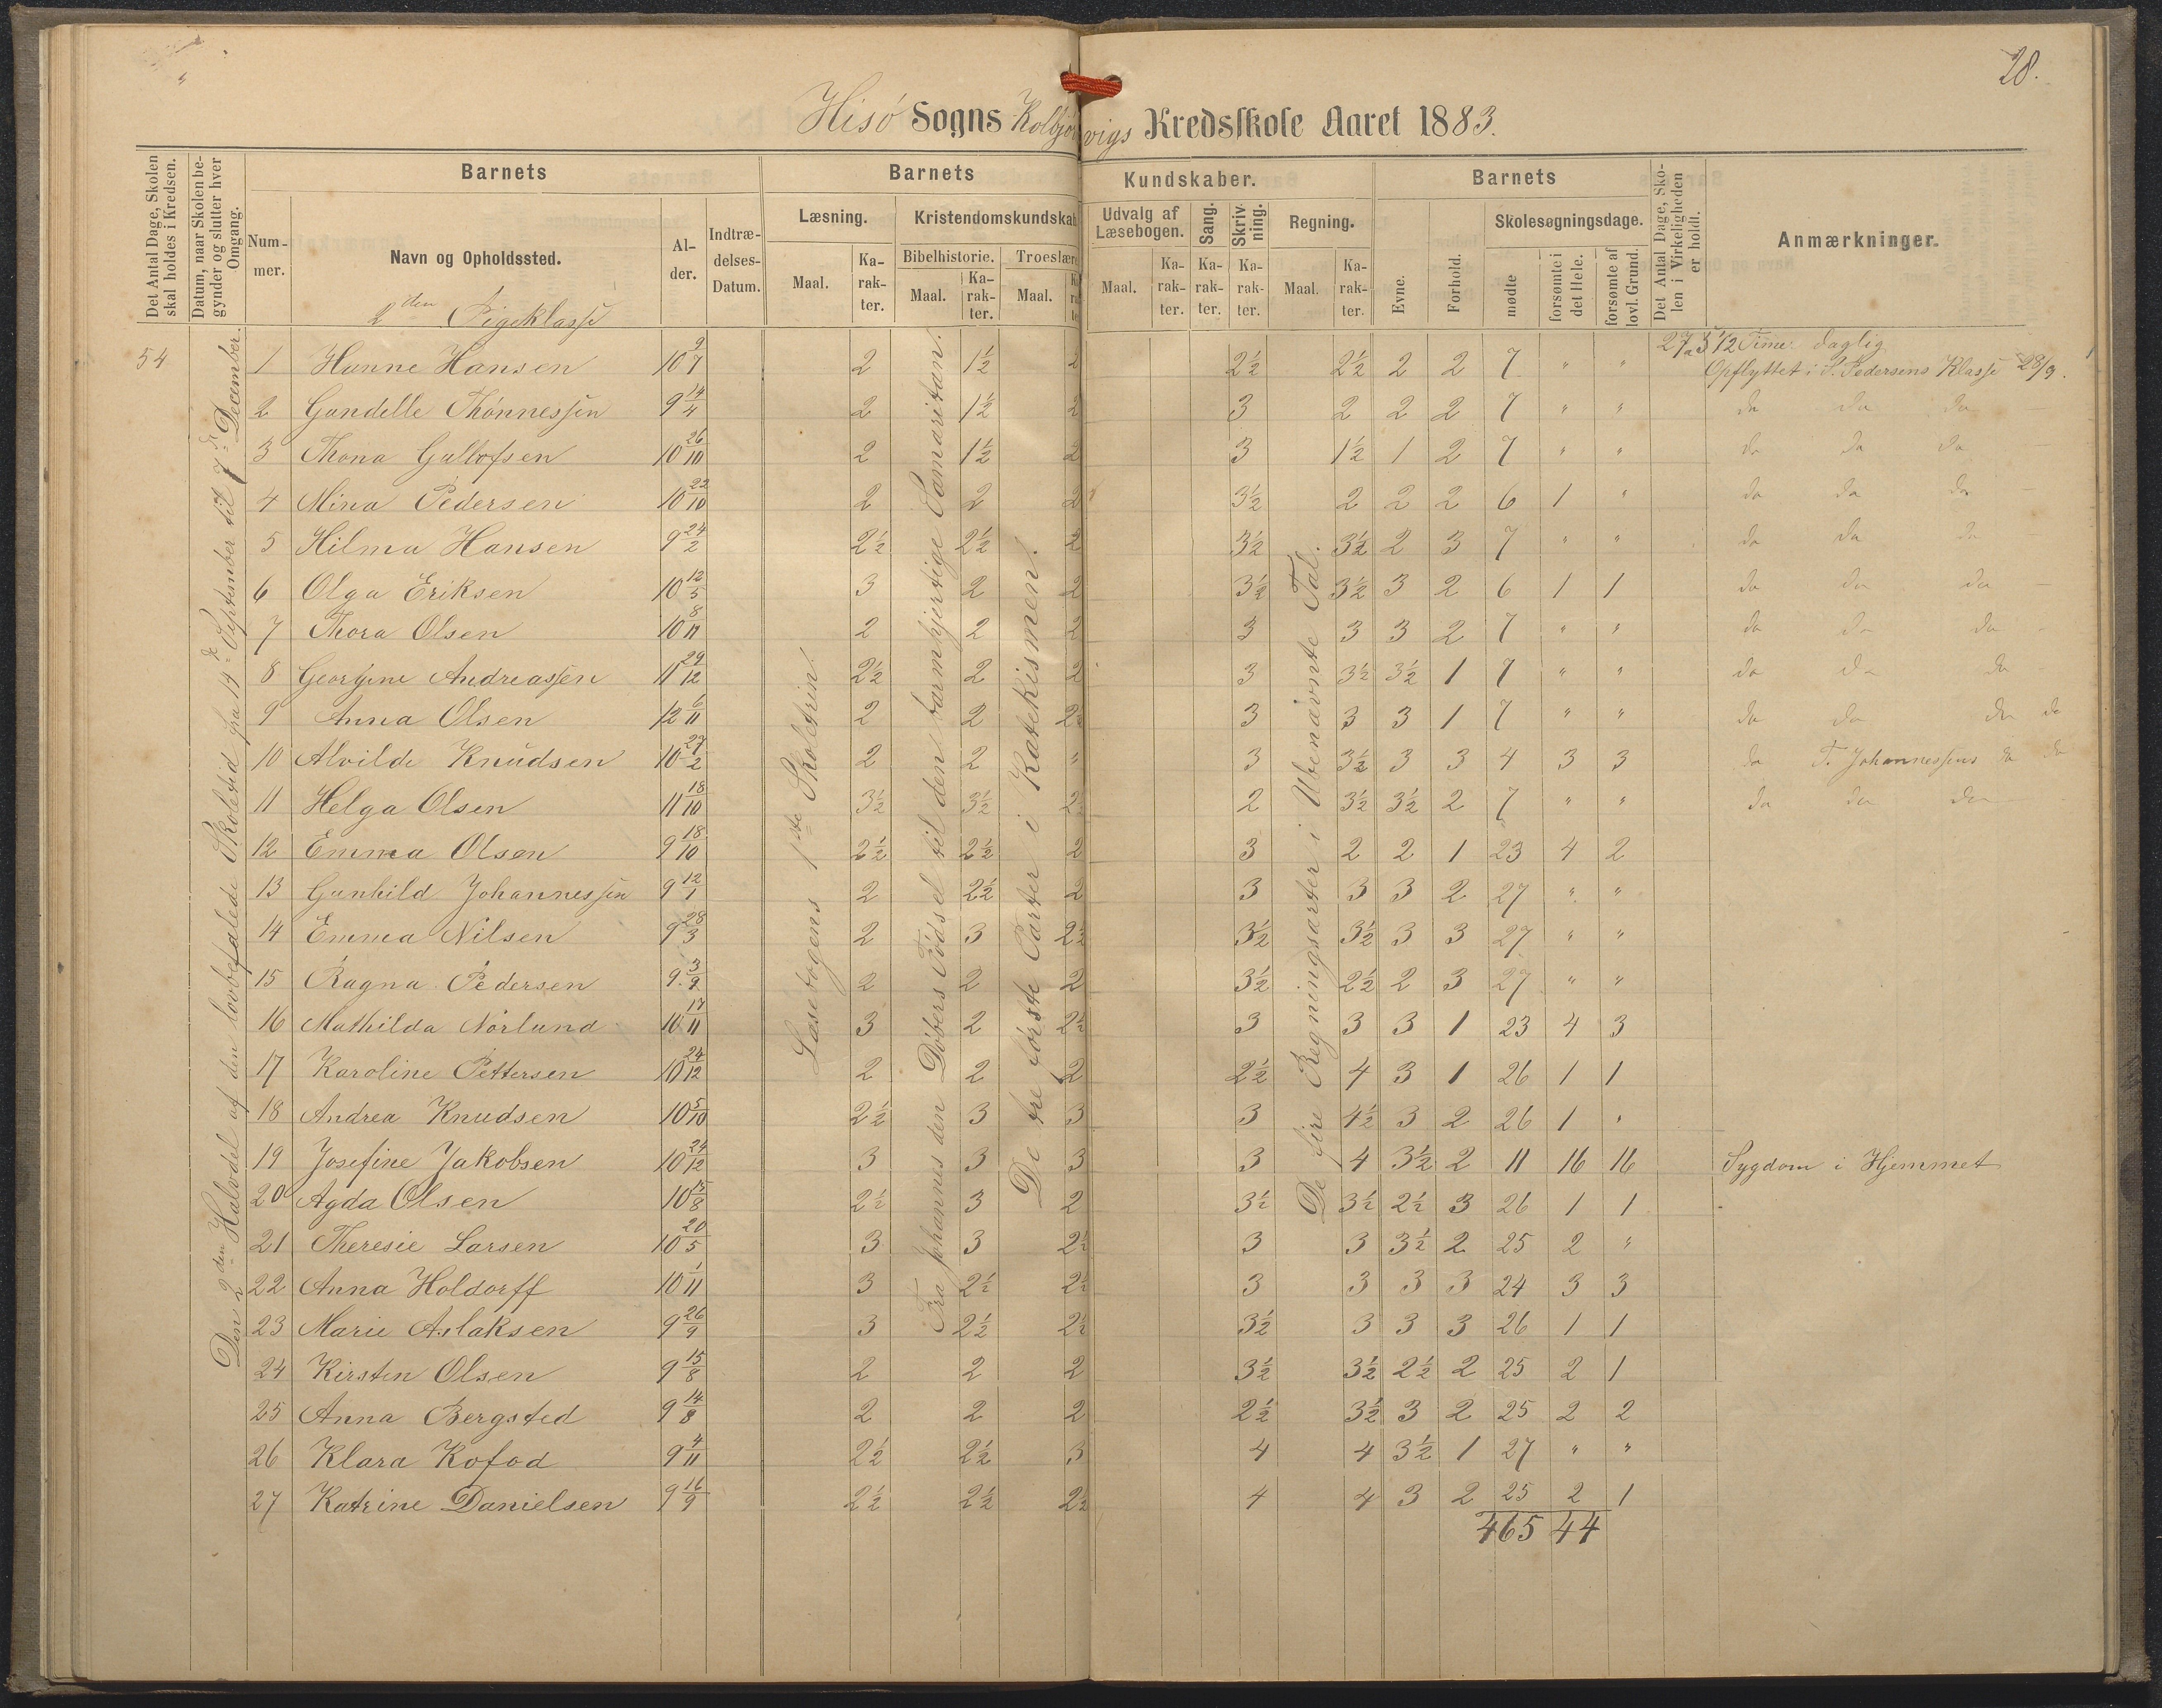 28.
Hisø Sogns Kolbjørnsvigs Kredsskole Aaret 1883.
Det Antal Dage, Skolen skal holdes i Kredsen.
Datum, naar Skolen begynder og slutter hver Omgang.
Barnets
Nummer.
Navn og Opholdssted.
Alder.
Indtrædelses-Datum.
Barnets
Læsning.
Maal.
Karakter.
Kristendomskundskab
Bibelhistorie.
Maal.
Karakter.
Troeslære
Maal.
Kundskaber.
Udvalg af Læsebogen.
Maal.
Karakter.
Sang.
Karakter.
Skrivning.
Karakter.
Regning.
Maal.
Karakter.
Barnets
Evne.
Forhold.
Skolesøgningsdage.
mødte
forsømte i det Hele.
forsømte af lovl. Grund.
Det Antal Dage, Skolen i Virkeligheden er holdt.
Anmærkninger.
2den Pigeklasse
54
Den 2den Halvdel af den lovbefalede Skoletid fra 14de September til 7de December.
Læsebogens 1ste Skoletrin.
Fra Johannes den Døbers Fødsel til den barmhjertige Samaritan.
De tre første Parter i Katekismen.
De fire Regningsarter i Ubenævnte Tal.
27 a 5 1/2 Time daglig
1 Hanne Hansen 10 9/7 2 1½ 2 2½ 2½ 2 2 7 " " Opflyttet i S. Pedersens Klasse 28/9.
2 Gundelle Thønnessen 9 14/4 2 1½ 2 3 2 2 2 7 " " do do do
3 Thona Gullofsen 10 26/10 2 1½ 2 3 1½ 1 2 7 " " do do do
4 Mina Pedersen 10 22/10 2 2 2 3½ 2 2 2 6 1 " do do do
5 Hilma Hansen 9 24/2 2½ 2½ 2 3½ 3½ 2 3 7 " " do do do
6 Olga Eriksen 10 12/5 3 2 2 3½ 3½ 3 2 6 1 1 do do do
7 Thora Olsen 10 8/11 2 2 2 3 3 3 2 7 " " do do do
8 Georgine Andreassen 11 29/12 2½ 2 2 3 3½ 3½ 1 7 " " do do do
9 Anna Olsen 12 6/11 2 2 2½ 3 3 3 1 7 " " do do do do
10 Alvilde Knudsen 10 27/2 2 2 " 3 3½ 3 3 4 3 3 do T. Johannessens do do
11 Helga Olsen 11 18/10 3½ 3½ 2½ 2 3½ 3½ 2 7 " " do do do
12 Emma Olsen 9 18/10 2½ 2½ 2 3 2 2 1 23 4 2
13 Gunhild Johannessen 9 12/1 2 2½ 2 3 3 3 2 27 " "
14 Emma Nilsen 9 28/3 2 3 2½ 3½ 3½ 3 3 27 " "
15 Ragna Pedersen 9 3/9 2 2 2 3½ 2½ 2 3 27 " "
16 Mathilda Nørlund 10 17/11 3 2 2½ 3 3 3 1 23 4 3
17 Karoline Pettersen 10 24/12 2 2 2 2½ 4 3 1 26 1 1
18 Andrea Knudsen 10 5/10 2½ 3 3 3 4½ 3 2 26 1 "
19 Josefine Jakobsen 10 24/12 3 3 3 3 4 3½ 2 11 16 16 Sygdom i Hjemmet
20 Agda Olsen 10 15/8 2½ 3 2 3½ 3½ 2½ 3 26 1 1
21 Theresie Larsen 10 20/5 3 3 2½ 3 3 3½ 2 25 2 "
22 Anna Holdorff 10 1/11 3 2½ 2½ 3 3 3 3 24 3 3
23 Marie Aslaksen 9 26/9 3 2½ 2½ 3½ 3 3 3 26 1 1
24 Kirsten Olsen 9 15/8 2 2 2 3½ 3½ 2½ 2 25 2 1
25 Anna Bergsted 9 14/8 2 2 2 2½ 3½ 3 2 25 2 2
26 Klara Kofod 9 4/11 2½ 2½ 3 4 4 3½ 1 27 " "
27 Katrine Danielsen 9 16/9 2½ 2½ 2½ 4 4 3 2 25 2 1
465 44